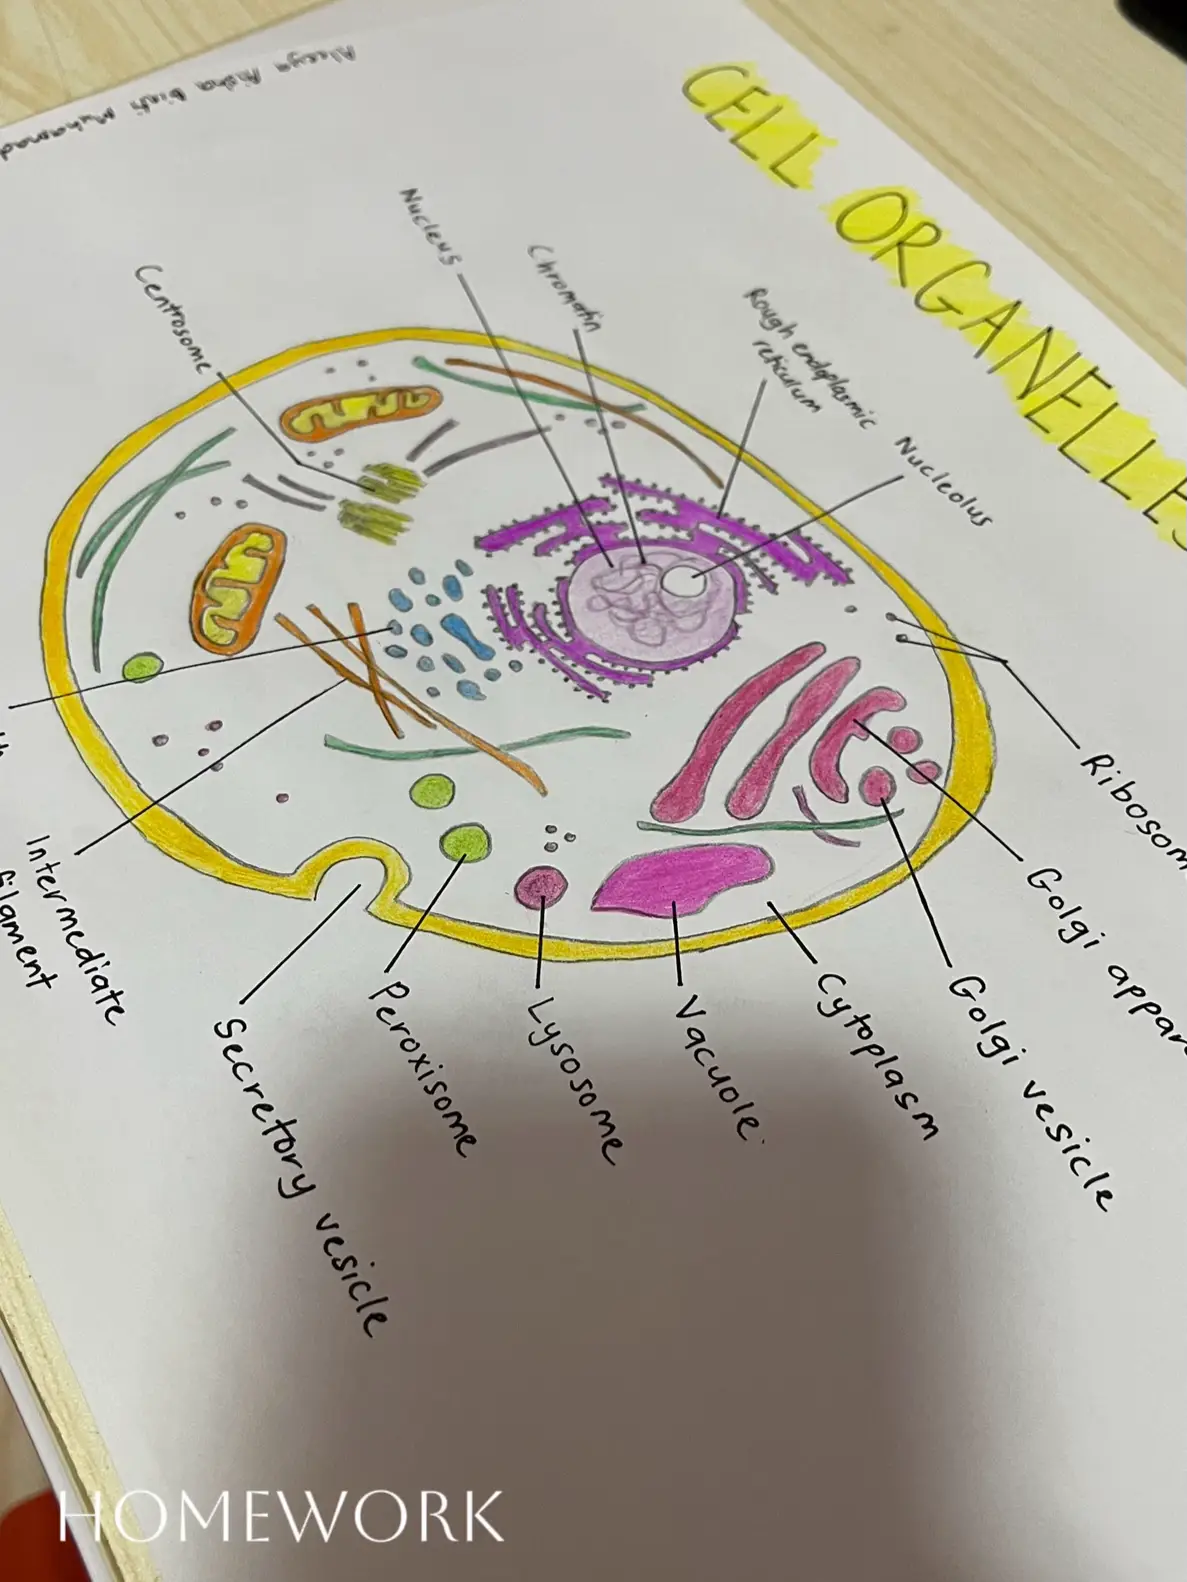 Aleeya Aisha binti Muhammad
CELL ORGANELLES
Nucleus
Chromatin
Centrosome
Rough endoplasmic
reticulum
Nucleolus
Ribosom
Golgi appar
Golgi vesicle
Cytoplasm
Vacuole
Lysosome
Peroxisome
Secretory vesicle
Intermediate
filament
HOMEWORK